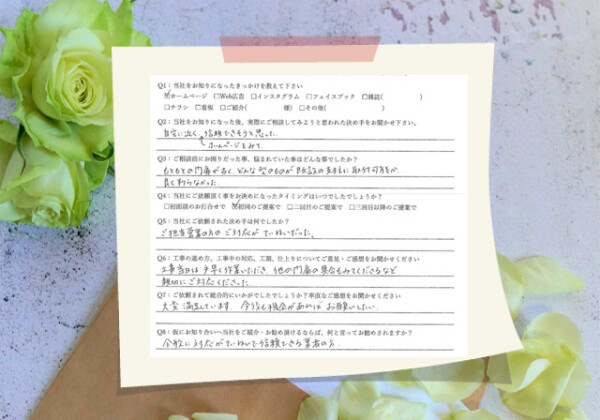 Q1：当社をお知りになったきっかけを教えて下さい
☑ホームページ □Web広告 □インスタグラム □フェイスブック □雑誌( )
□チラシ □看板 □ご紹介( 様) □その他( )
Q2：当社をお知りになった後、実際にご相談してみようと思われた決め手をお聞かせ下さい。
自宅に近く、信頼できそうと思った
ホームページをみて
Q3：ご相談前にお困りだった事、悩まれていた事はどんな事でしたか？
もともとの門扉がなく、どんな型のものが既設の支柱に取付可能か
良く判らなかった
Q4：当社にご依頼頂く事をお決めになったタイミングはいつでしたでしょうか？
□初面談のお打合せで ☑初回のご提案で □二回目のご提案で □三回目以降のご提案で
Q5：当社にご依頼された決め手は何でしたか？
ご担当営業の方の対応がていねいだった。
Q6：工事の進め方、工事中の対応、工期、仕上りについてご意見・ご感想をお聞かせください
工事当日は手早く作業いただき、他の門扉の具合もみてくださるなど
親切にご対応くださった
Q7：ご依頼されて総合的にいかがでしたでしょうか？率直なご感想をお聞かせください
大変満足しています。今後も機会があればお願いしたい。
Q8：仮にお知り合いへ当社をご紹介・お勧め頂けるならば、何と言ってお勧めされますか？
全般に対応がていねいで信頼できる業者の方。